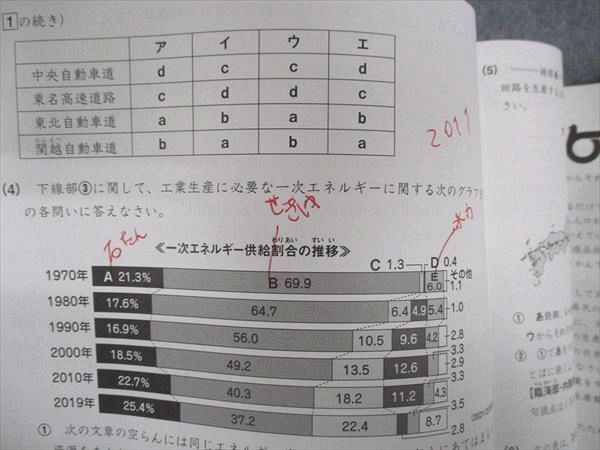 1の続き)
ア イ ウ エ
中央自動車道 d c c d
東名高速道路 c d d c
東北自動車道 a b a b
かんえつ
関越自動車道 b a b a
2011
(4) 下線部③に関して、工業生産に必要な一次エネルギーに関する次のグラフ
の各問いに答えなさい。
せきゆ
水力
石たん
わりあい すい い
≪一次エネルギー供給割合の推移≫
C 1.3 D 0.4
1970年 A 21.3% B 69.9 E 6.0 その他 1.1
1980年 17.6% 64.7 6.4 4.9 5.4 1.0
1990年 16.9% 56.0 10.5 9.6 4.2 2.8
2000年 18.5% 49.2 13.5 12.6 3.3 2.9
2010年 22.7% 40.3 18.2 11.2 4.3 3.3
2019年 25.4% 37.2 22.4 2.8 3.5 8.7
① 次の文章の空らんには同じエネルギー
(5)
回路を生産する
さい。
① あ
ウからそれぞれ
② ①で
とばに続く
[臨海部・
句読点は1